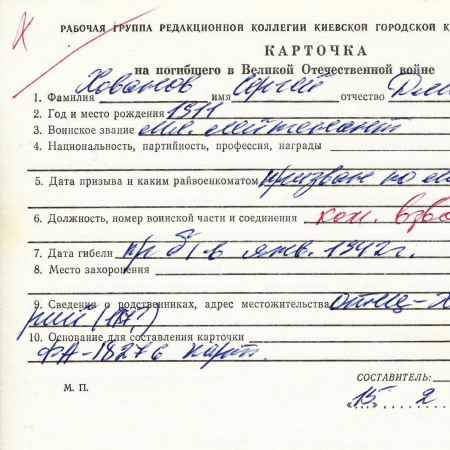 РАБОЧАЯ ГРУППА РЕДАКЦИОННОЙ КОЛЛЕГИИ КИЕВСКОЙ ГОРОДСКОЙ К
КАРТОЧКА
на погибшего в Великой Отечественной войне
1. Фамилия Хованов имя Сергей отчество Дми
2. Год и место рождения 1911
3. Воинское звание мл. лейтенант
4. Национальность, партийность, профессия, награды
5. Дата призыва и каким райвоенкоматом призван по
6. Должность, номер воинской части и соединения ком. взво
7. Дата гибели пр б/в янв. 1942 г.
8. Место захоронения
9. Сведения о родственниках, адрес местожительства отец - Х
рий
10. Основание для составления карточки
ФА-18276 карт.
М. П.
СОСТАВИТЕЛЬ:
«15» 2